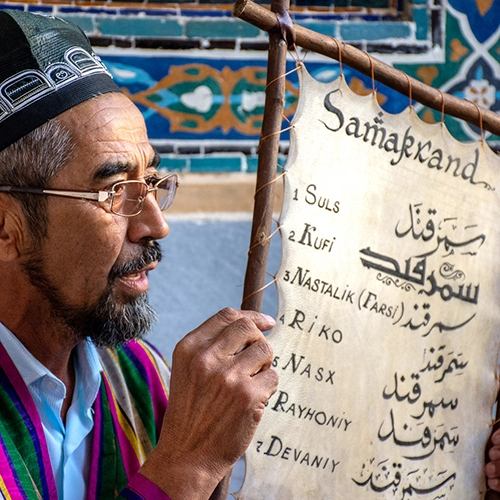 Samarkand
1 Suls سمرقند
2 Kufi سمرقند
3 Nastalik (Farsi) سمرقند
4 Riko سمرقند
5 Nasx سمرقند
6 Rayhoniy سمرقند
7 Devaniy سمرقند